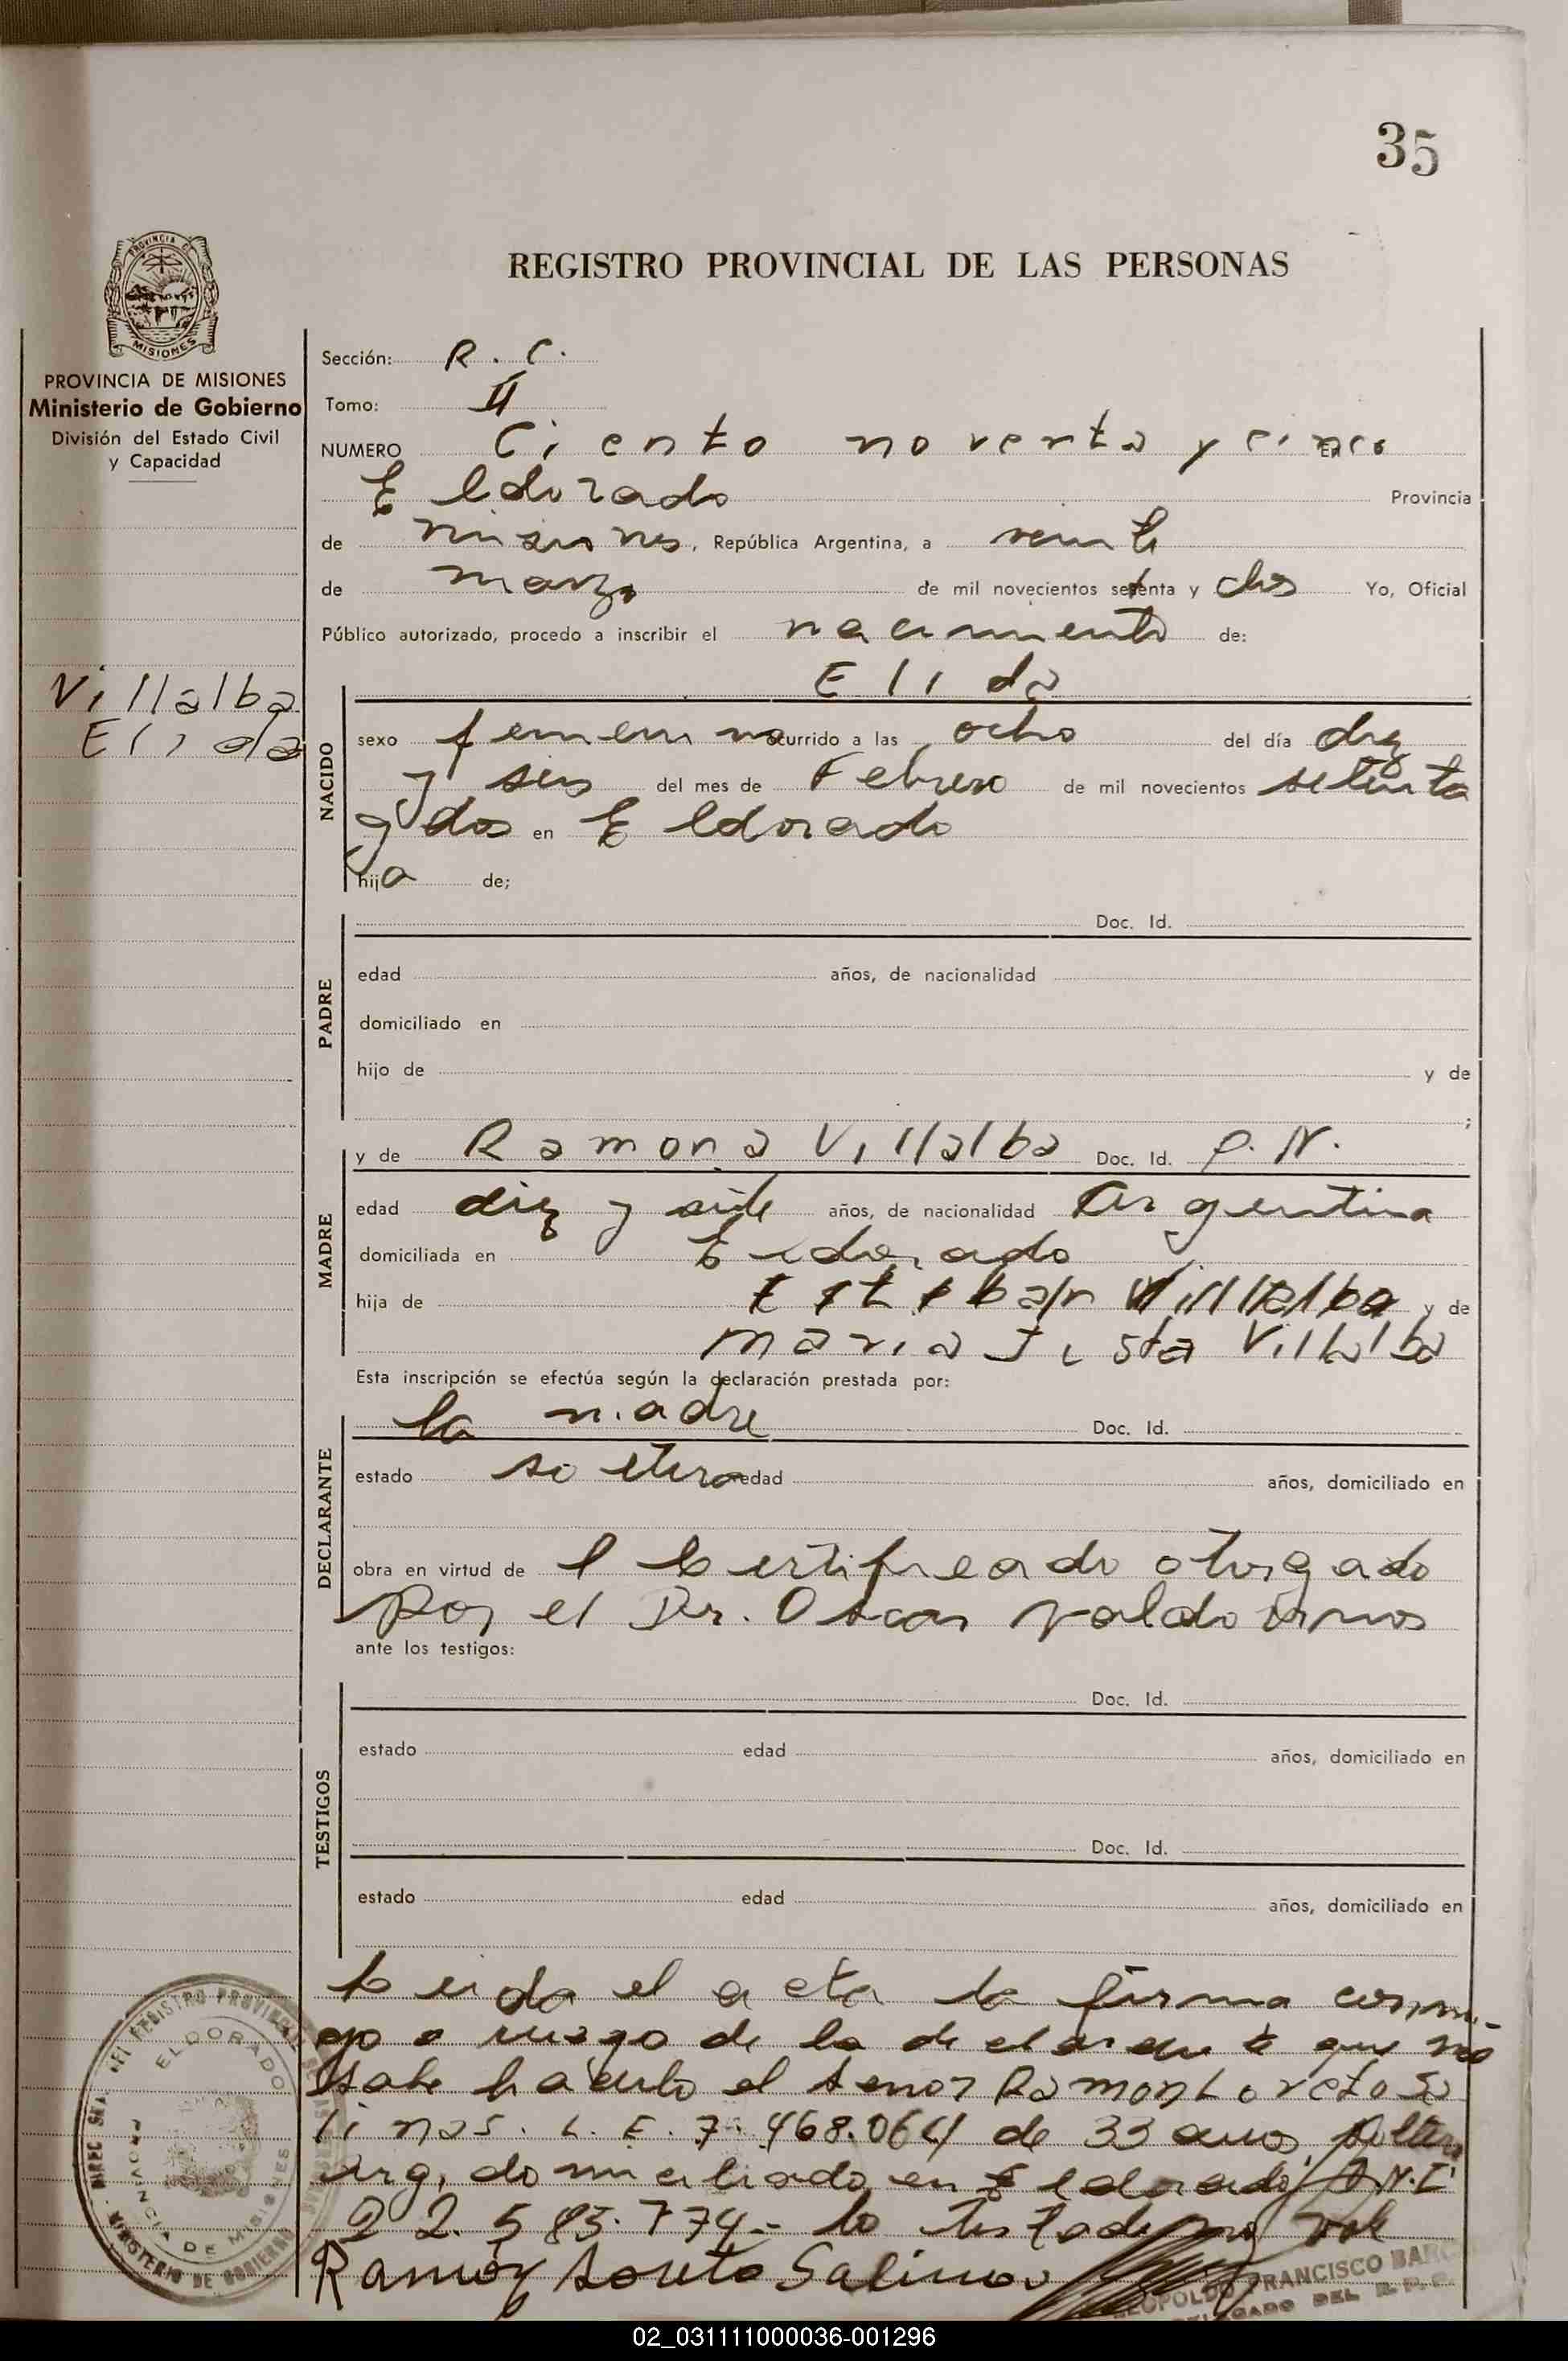 35
REGISTRO PROVINCIAL DE LAS PERSONAS
MISIONES
PROVINCIA DE MISIONES
Ministerio de Gobierno
División del Estado Civil
y Capacidad
Villalba
Elida
Sección: R. C.
Tomo: II
NUMERO Ciento noventa y cinco
Eldorado Provincia
de misiones, República Argentina, a veinte
de marzo de mil novecientos setenta y dos Yo, Oficial
Público autorizado, procedo a inscribir el nacimiento de:
Elida
NACIDO
sexo femenino ocurrido a las ocho del día diez
y seis del mes de Febrero de mil novecientos setenta
y dos en Eldorado
hija de;
PADRE
Doc. Id.
edad años, de nacionalidad
domiciliado en
hijo de y de
;
MADRE
y de Ramona Villalba Doc. Id. P. N.
edad diez y siete años, de nacionalidad Argentina
domiciliada en Eldorado
hija de Esteban Villalba y de
maria Justa Villalba
Esta inscripción se efectúa según la declaración prestada por:
DECLARANTE
la madre Doc. Id.
estado soltera edad años, domiciliado en
obra en virtud de l Certificado otorgado
Por el Dr. Oscar
ante los testigos:
TESTIGOS
Doc. Id.
estado edad años, domiciliado en
Doc. Id.
estado edad años, domiciliado en
Leida el acta la firma conmi-
go a ruego de la declarante que no
sabe hacerlo el senor Ramon Loreto Sa
linas. L. E. 7.468.064 de 33 anos, soltero
arg, domiciliado en Eldorado D.N.I
22.585.774.- lo testado no vale
Ramón Loreto Salinas
LEOPOLDO FRANCISCO
DELEGADO DEL R. P. P.
DEL REGISTRO PROVINCIAL
ELDORADO
PROVINCIA DE MISIONES
MINISTERIO DE GOBIERNO
02_031111000036-001296